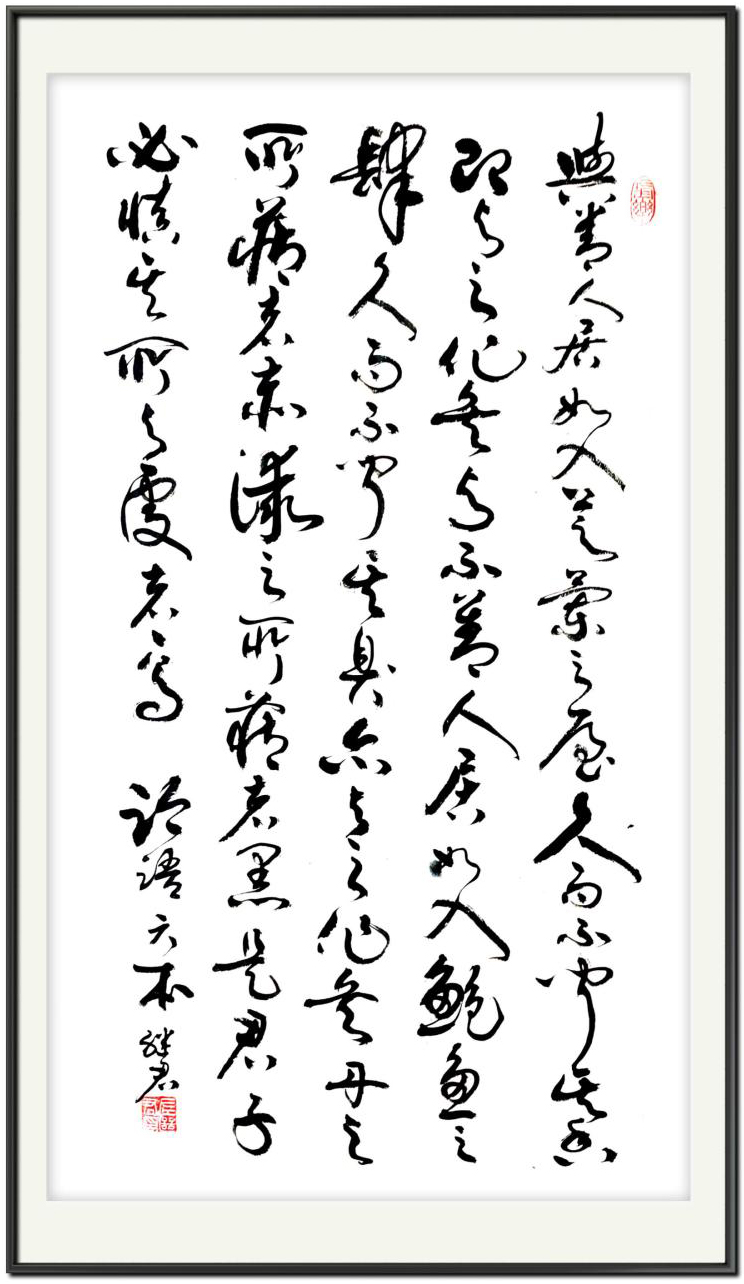 與善人居如入芝蘭之屋久而不聞其香
即与之化矣与不善人居如入鮑魚之
肆久而不聞其臭亦与之化矣丹之
所藏者赤漆之所藏者黑是君子
必慎其所与處者焉 論語六本